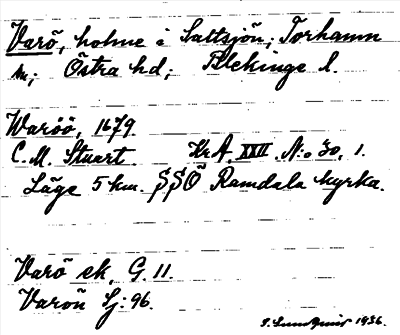 Varö, holme i Saltsjön; Torhamn
sn; Östra hd; Blekinge l.
Waröö, 1679.
C. M. Stuart. Kr A. XXII. No 30, 1.
Läge 5 km. SSÖ Ramdala kyrka.
Varö ek. G. 11.
Varön Sj: 96.
S. Lundquist 1936.